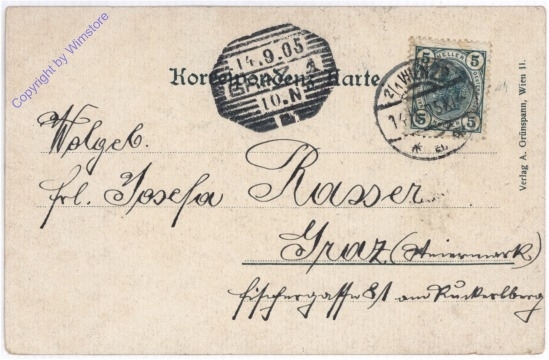 Copyright by Wimstore
14.9.05
GRAZ 1
10.N
Korrespondenz Karte
5 HELLER 5
5 5
WIEN
Wolgeb.
frl. Josefa Rasser
Graz (Steiermark)
Fischergasse 8/I am Ruckerlberg
Verlag A. Grünspann, Wien II.